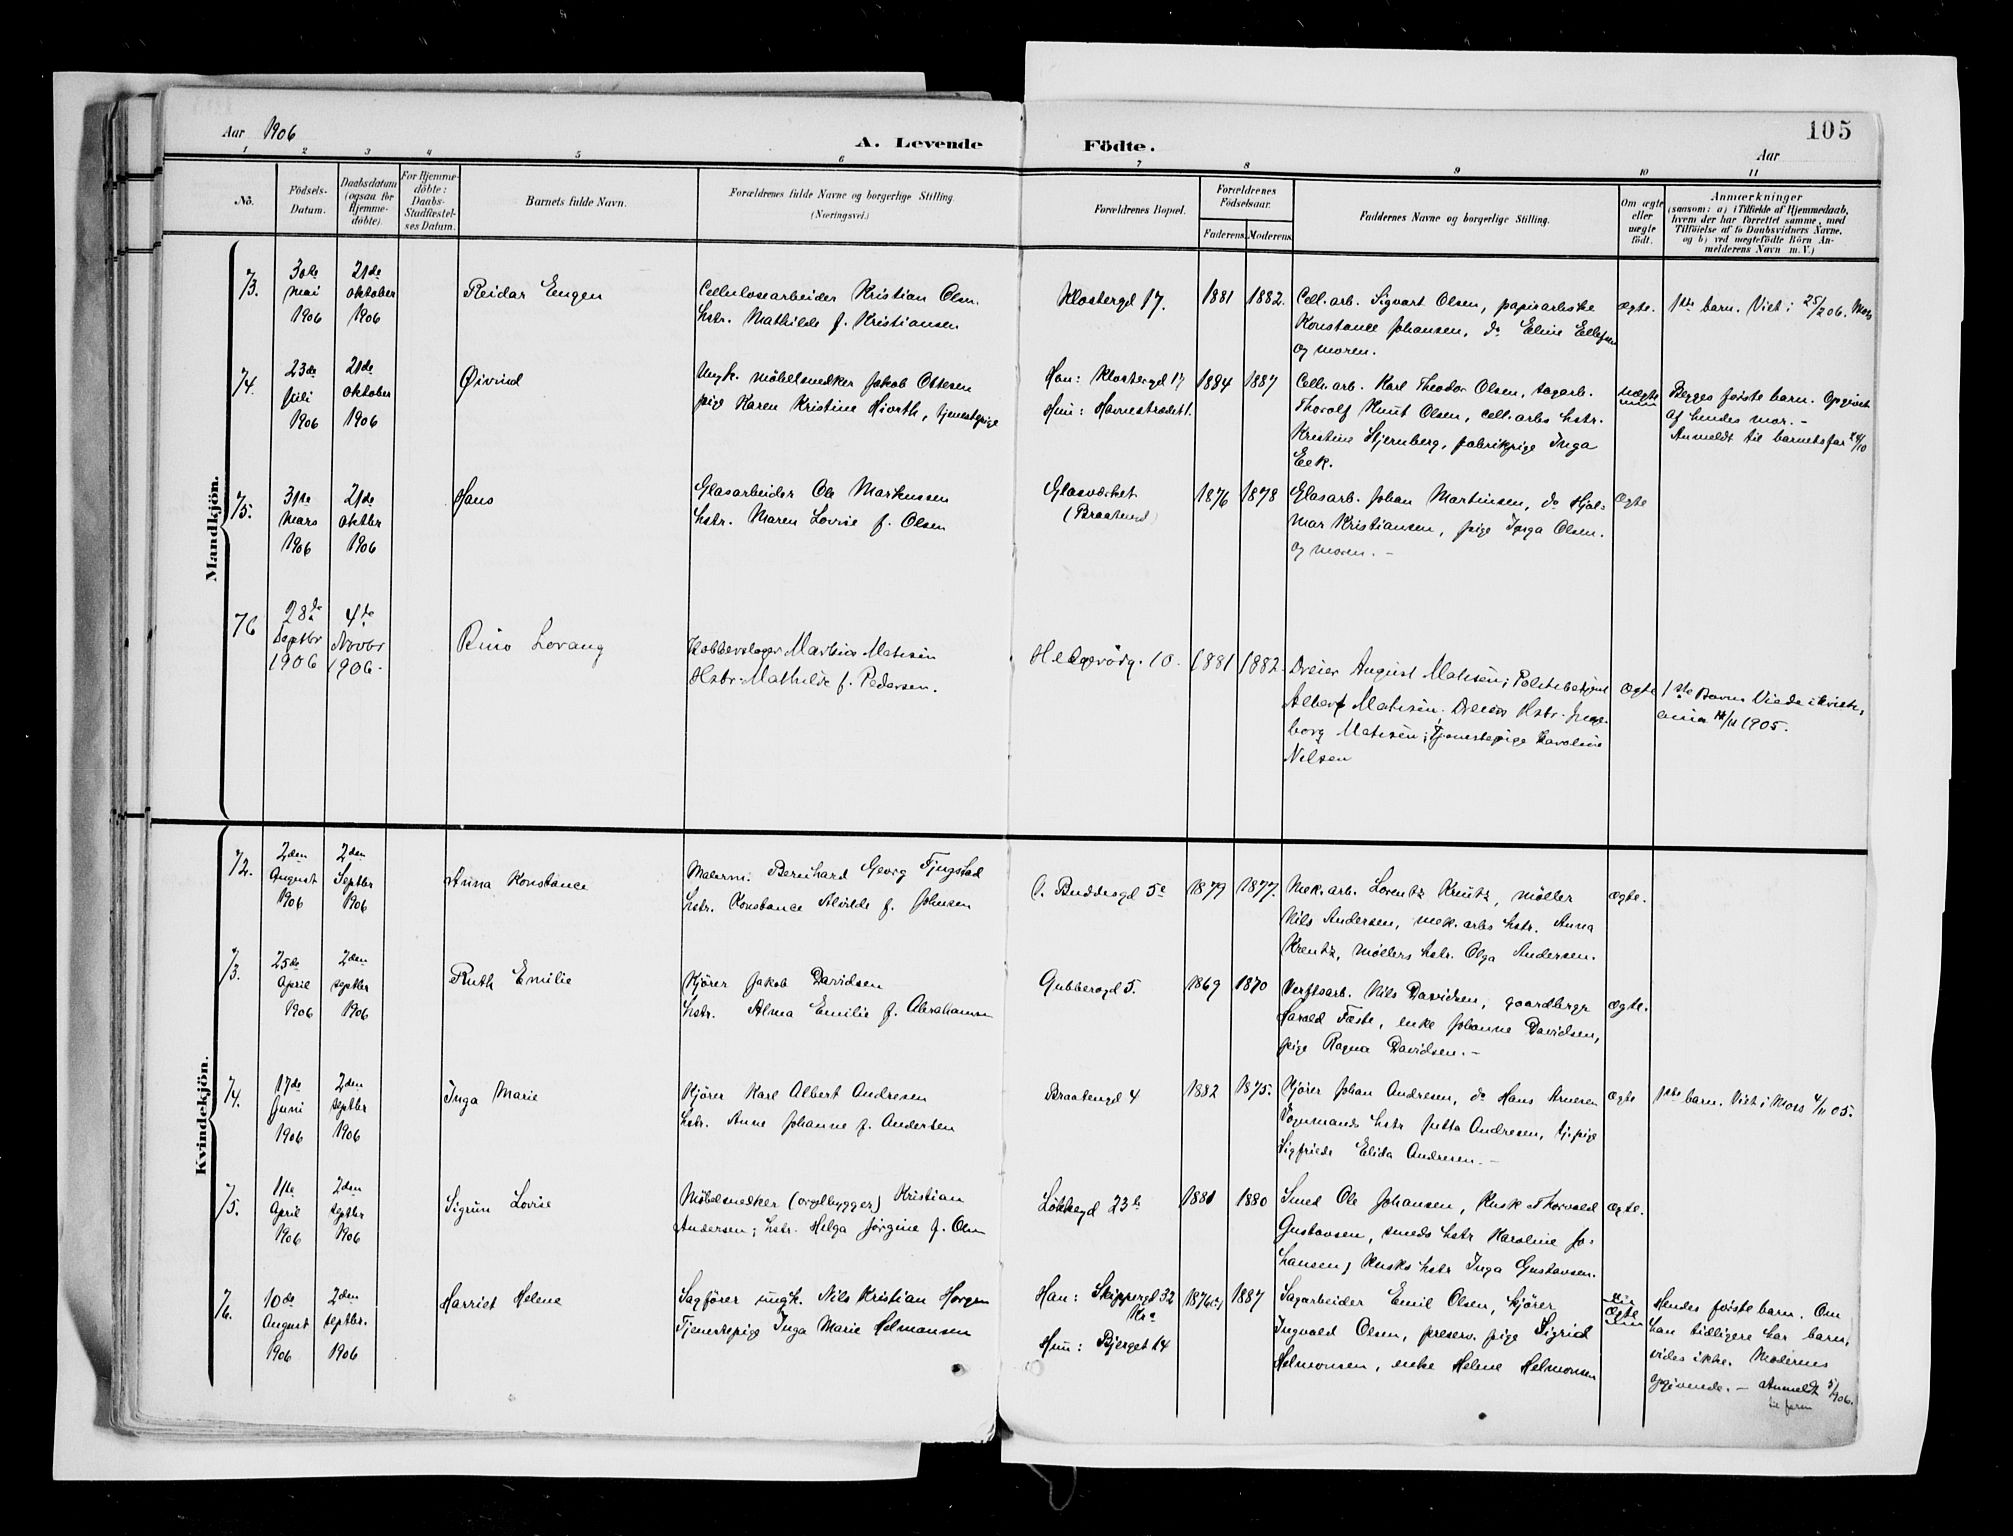 Aar 1906
A. Levende Födte.
105
Aar
1 2 3 4 5 6 7 8 9 10 11
No.
Födsels-
Datum.
Daabsdatum
(ogsaa for
Hjemme-
döbte).
For Hjemme-
döbte:
Daabs-
Stadfæstel-
ses Datum.
Barnets fulde Navn.
Forældrenes fulde Navne og borgerlige Stilling.
(Næringsvei.)
Forældrenes Bopæl.
Forældrenes
Födselsaar.
Faderens. Moderens.
Faddernes Navne og borgerlige Stilling.
Om ægte
eller
uægte
födt.
Anmærkninger
(saasom: a) i Tilfælde af Hjemmedaab,
hvem der har forrettet samme, med
Tilföielse af to Daabsvidners Navne,
og b) ved uegtefödte Börn An-
melderens Navn m.V.)
Mandkjön.
73.
30de
mai
1906
21de
oktober
1906
Reidar Eugen
Cellulosearbeider Kristian Olsen.
hstr. Mathilde f. Kristiansen
Klostergd 17.
1881 1882.
Cell. arb. Sigvart Olsen, papirarbeiske
Konstance Johansen, do Eline Ellefsen
og moren.
ægte.
1ste barn. Viet i 25/2 06. Moss
74.
23de
juli
1906
21de
oktober
1906
Øivind
Ungk. möbelsnedker Jakob Ottesen
pige Karen Kristine Hiorth, tjenestepige
Han: Klostergd 17
Hun: Havnestrædet 1.
1884 1887
Cell. arb. Karl Theodor Olsen, sagarb.
Thorolf Knut Olsen, cell. arbs hstr.
Kristine Stjernberg, fabrikpige Inga
Eek.
uægte
Begges første barn. Opgivet
af hendes mor. -
Anmeldt til barnets far
75.
31te
mars
1906
21de
oktbr
1906
Hans
Glasarbeider Ole Markussen
hstr. Maren Lovise f. Olsen
Glasværket
(Braatend)
1876 1878
Glasarb. Johan Martinsen, do Hjal-
mar Kristiansen, pige Inga Olsen.
og moren. -
ægte
76
28de
Septbr
1906
4de
Novbr
1906.
Rino Lorang
Kobberslager Marius Matisen
Hstr. Mathilde f. Pedersen.
Helgerödg. 10.
1881 1882.
Dreier August Matisen; Politibetjent
Albert Matisen. Dreiers Hstr. Inge-
borg Matisen; Tjenestepige Karoline
Nilsen
ægte
1ste Barn Viede i Kristi-
ania /11 1905.
Kvindekjön.
72.
2den
August
1906
2den
Septbr
1906
Anna Konstance
Malerm. Bernhard Georg Fjugstad
hstr. Konstance Alvilde f. Johnsen
O. Buddesgd 5c
1879 1877.
Mek. arb. Lorentz Krentz, møller
Nils Andersen, mek. arbs hstr. Anna
Krentz, møllers hstr. Olga Andersen.
ægte.
73.
25de
April
1906
2den
septbr
1906
Ruth Emilie
Kjører Jakob Davidsen
hstr. Alma Emilie f. Abrahamsen
Gubberogd 5.
1869 1870
Verftsarb. Nils Davidsen, gaardbrgr
Harald Fæste, enke Johanne Davidsen,
pige Ragna Davidsen. -
ægte.
74.
17de
juni
1906
2den
septbr
1906
Inga Marie
Kjører Karl Albert Andresen
hstr. Anne Johanne f. Andersen
Braatengd 4
1882 1875.
Kjører Johan Andresen, do Hans Arnesen
Vognmands hstr Jutta Andresen, tj. pige
Sigfride Elida Andresen. -
ægte
1ste barn. Viet i Moss 4/11 05.
75.
11te
April
1906
2den
septbr
1906
Sigrun Lovise
Møbelsnedker (orgelbygger) Kristian
Andersen; hstr. Helga Jörgine f. Olsen
Løkkegd 23b
1881 1880
Smed Ole Johansen, Kusk Thorvald
Gustavsen, smeds hstr Karoline Jo-
hansen, Kusks hstr Inga Gustavsen.
ægte.
76.
10de
August
1906
2den
septbr.
1906
Harriet Helene
Sagfører ungk. Nils Kristian Horgen
Tjenestepige Inga Marie Helmonsen
Han: Skippergd 32
Kra
Hun: Bjerget 14
1876(?) 1887
Sagarbeider Emil Olsen, kjører
Ingvald Olsen, preserv. pige Sigrid
Helmonsen, enke Helene Helmonsen
uægte
Hendes første barn. Om
han tidligere har barn,
vides ikke. Moderens
opgivende. - Anmeldt 5/9 06.
til faren